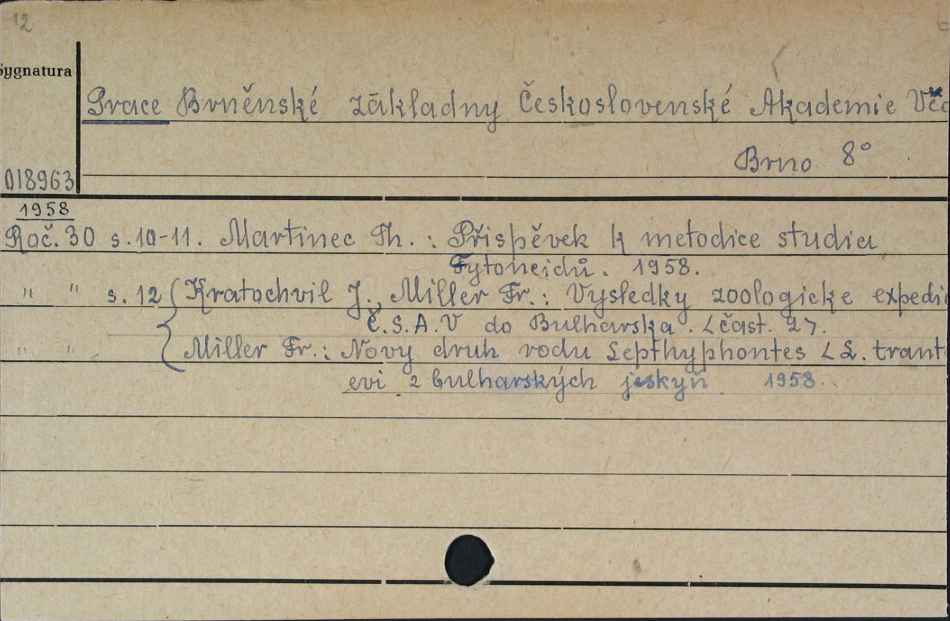 12
Sygnatura
Prace Brněnské základny Československé Akademie Vě
Brno 8°
018963
1958
Roč. 30 s. 10-11. Martinec Th. : Přispěvek k metodice studia
Fytoncidů. 1958.
" " s. 12 Kratochvil J., Miller Fr. : Vysledky zoologicke expedi
Č.S.A.V do Bulharska. Část. 27.
" " Miller Fr. : Novy druh rodu Lepthyphontes L. trant
evi z bulharských jeskyň 1958.